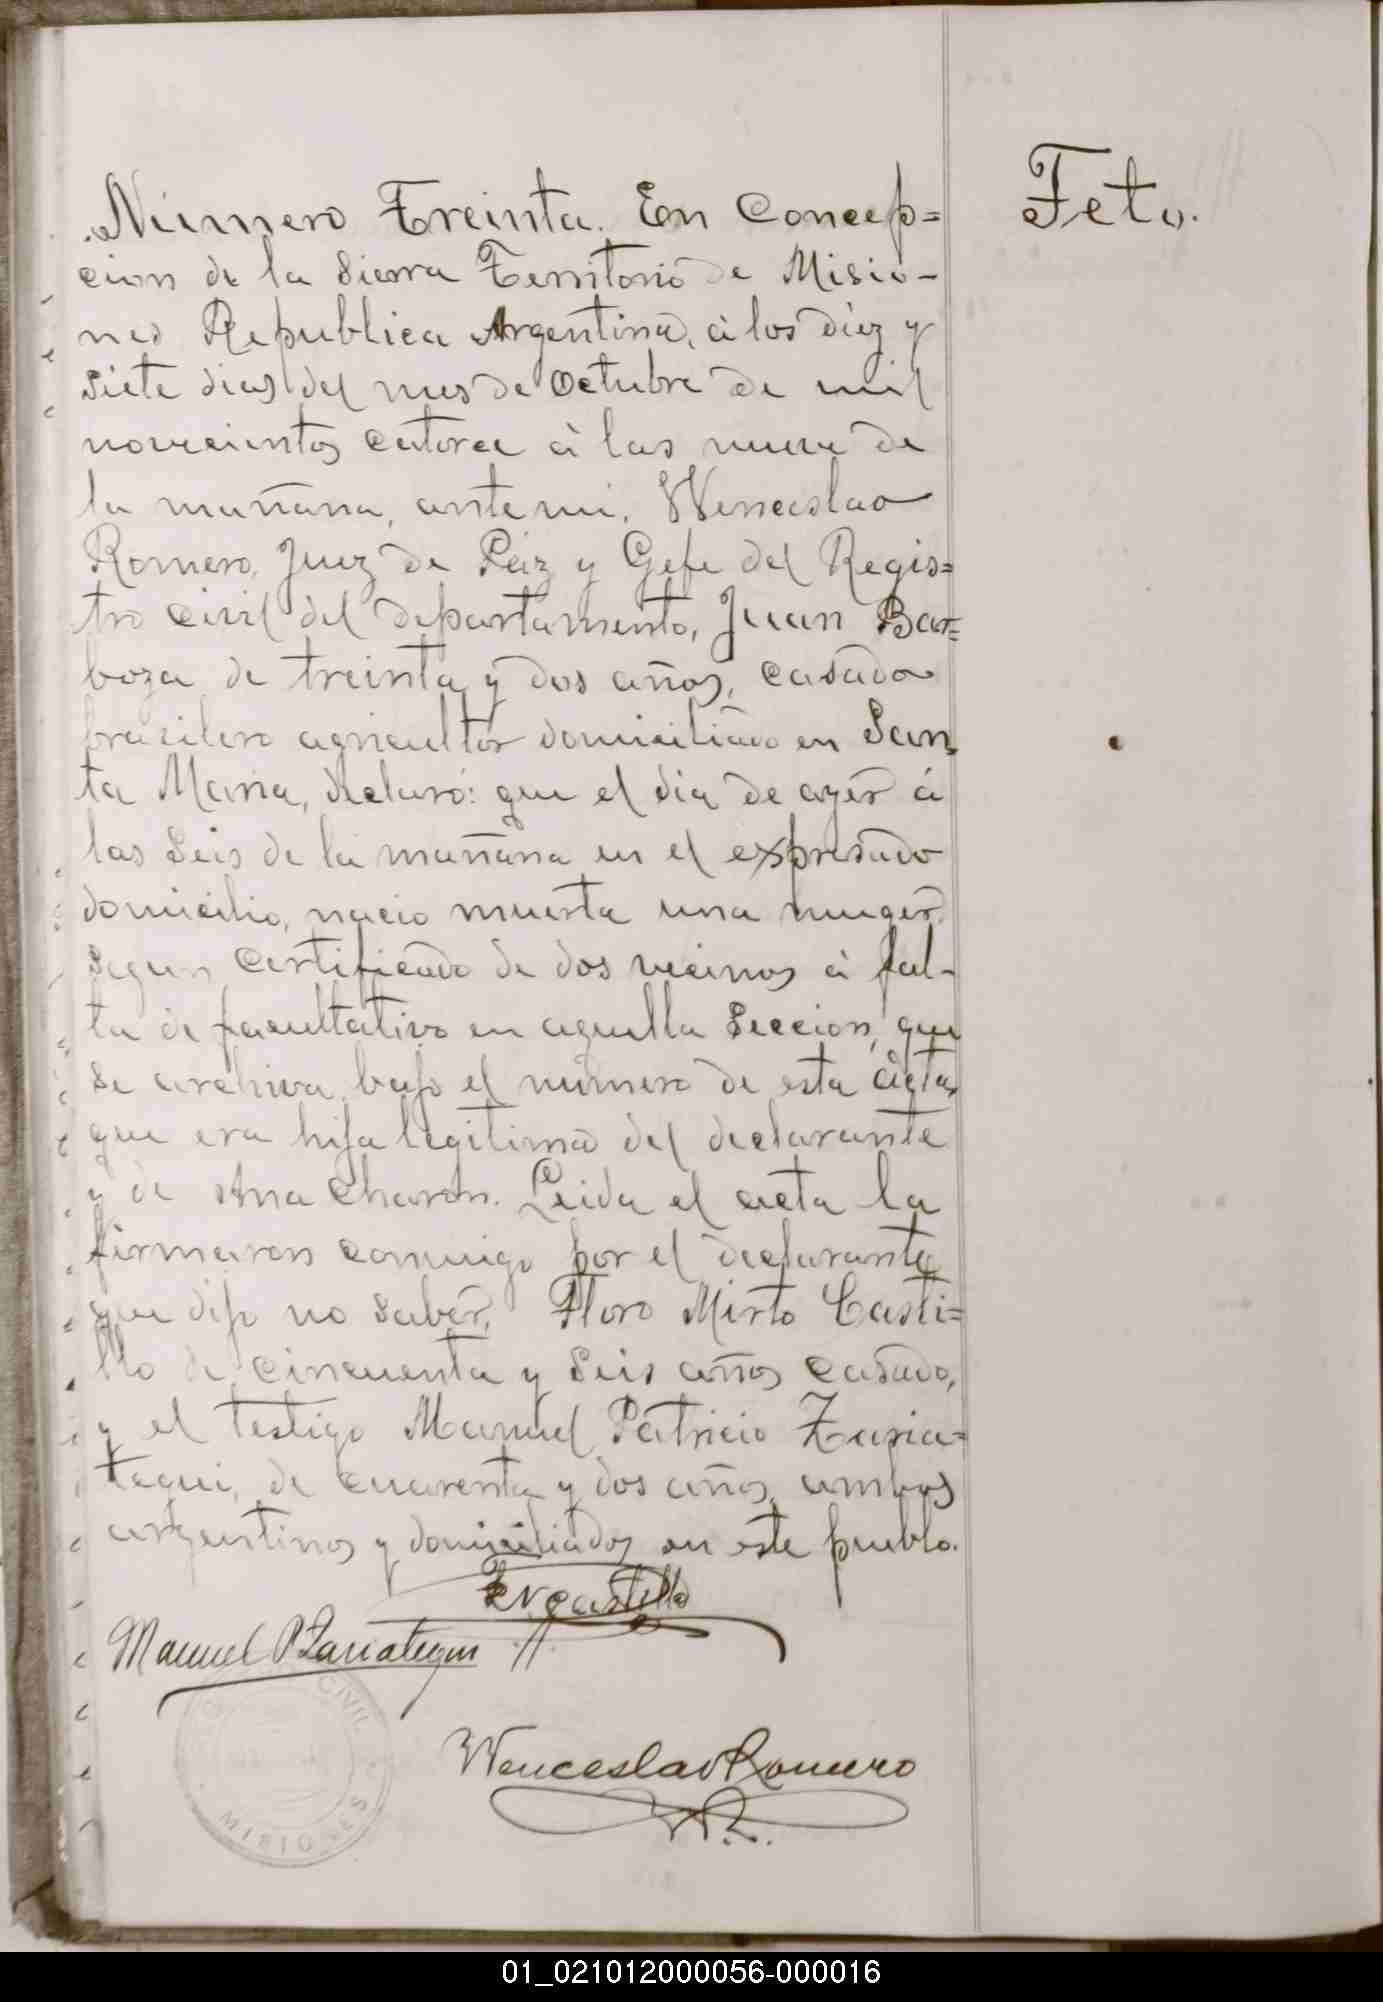 Número Treinta. En Concep=
cion de la Sierra Territorio de Misio-
nes Republica Argentina, á los diez y
siete dias del mes de Octubre de mil
novecientos catorce á las nueve de
la mañana, ante mi, Wenceslao
Romero, Juez de Paz y Gefe del Regis=
tro Civil del departamento, Juan Bar=
boza de treinta y dos años, casado
brasilero agricultor domiciliado en San
ta Maria, declaró: que el dia de ayer á
las seis de la mañana en el expresado
domicilio, nació muerta una muger,
segun certificado de dos vecinos á fal-
ta de facultativo en aquella Seccion, que
se archiva bajo el número de esta acta,
que era hija legitima del declarante
y de Ana Charon. Leida el acta la
firmaron conmigo por el declarante
que dijo no saber, Floro Mirto Casti=
llo de cincuenta y seis años casado,
y el testigo Manuel Patricio Zaria=
tegui, de cuarenta y dos años, ambos
argentinos y domiciliados en este pueblo.
Castillo
Manuel P Zariategui
Wenceslao Romero
W.R.
Feto.
CIVIL
MISIONES
01_021012000056-000016